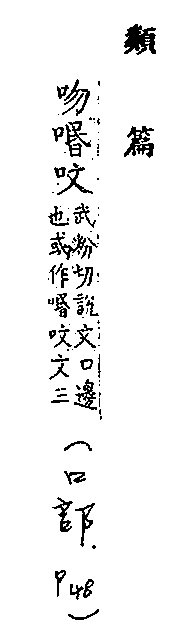 類篇
吻㖧呅武粉切說文口邊
也或作㖧呅文三
(口部. P48)